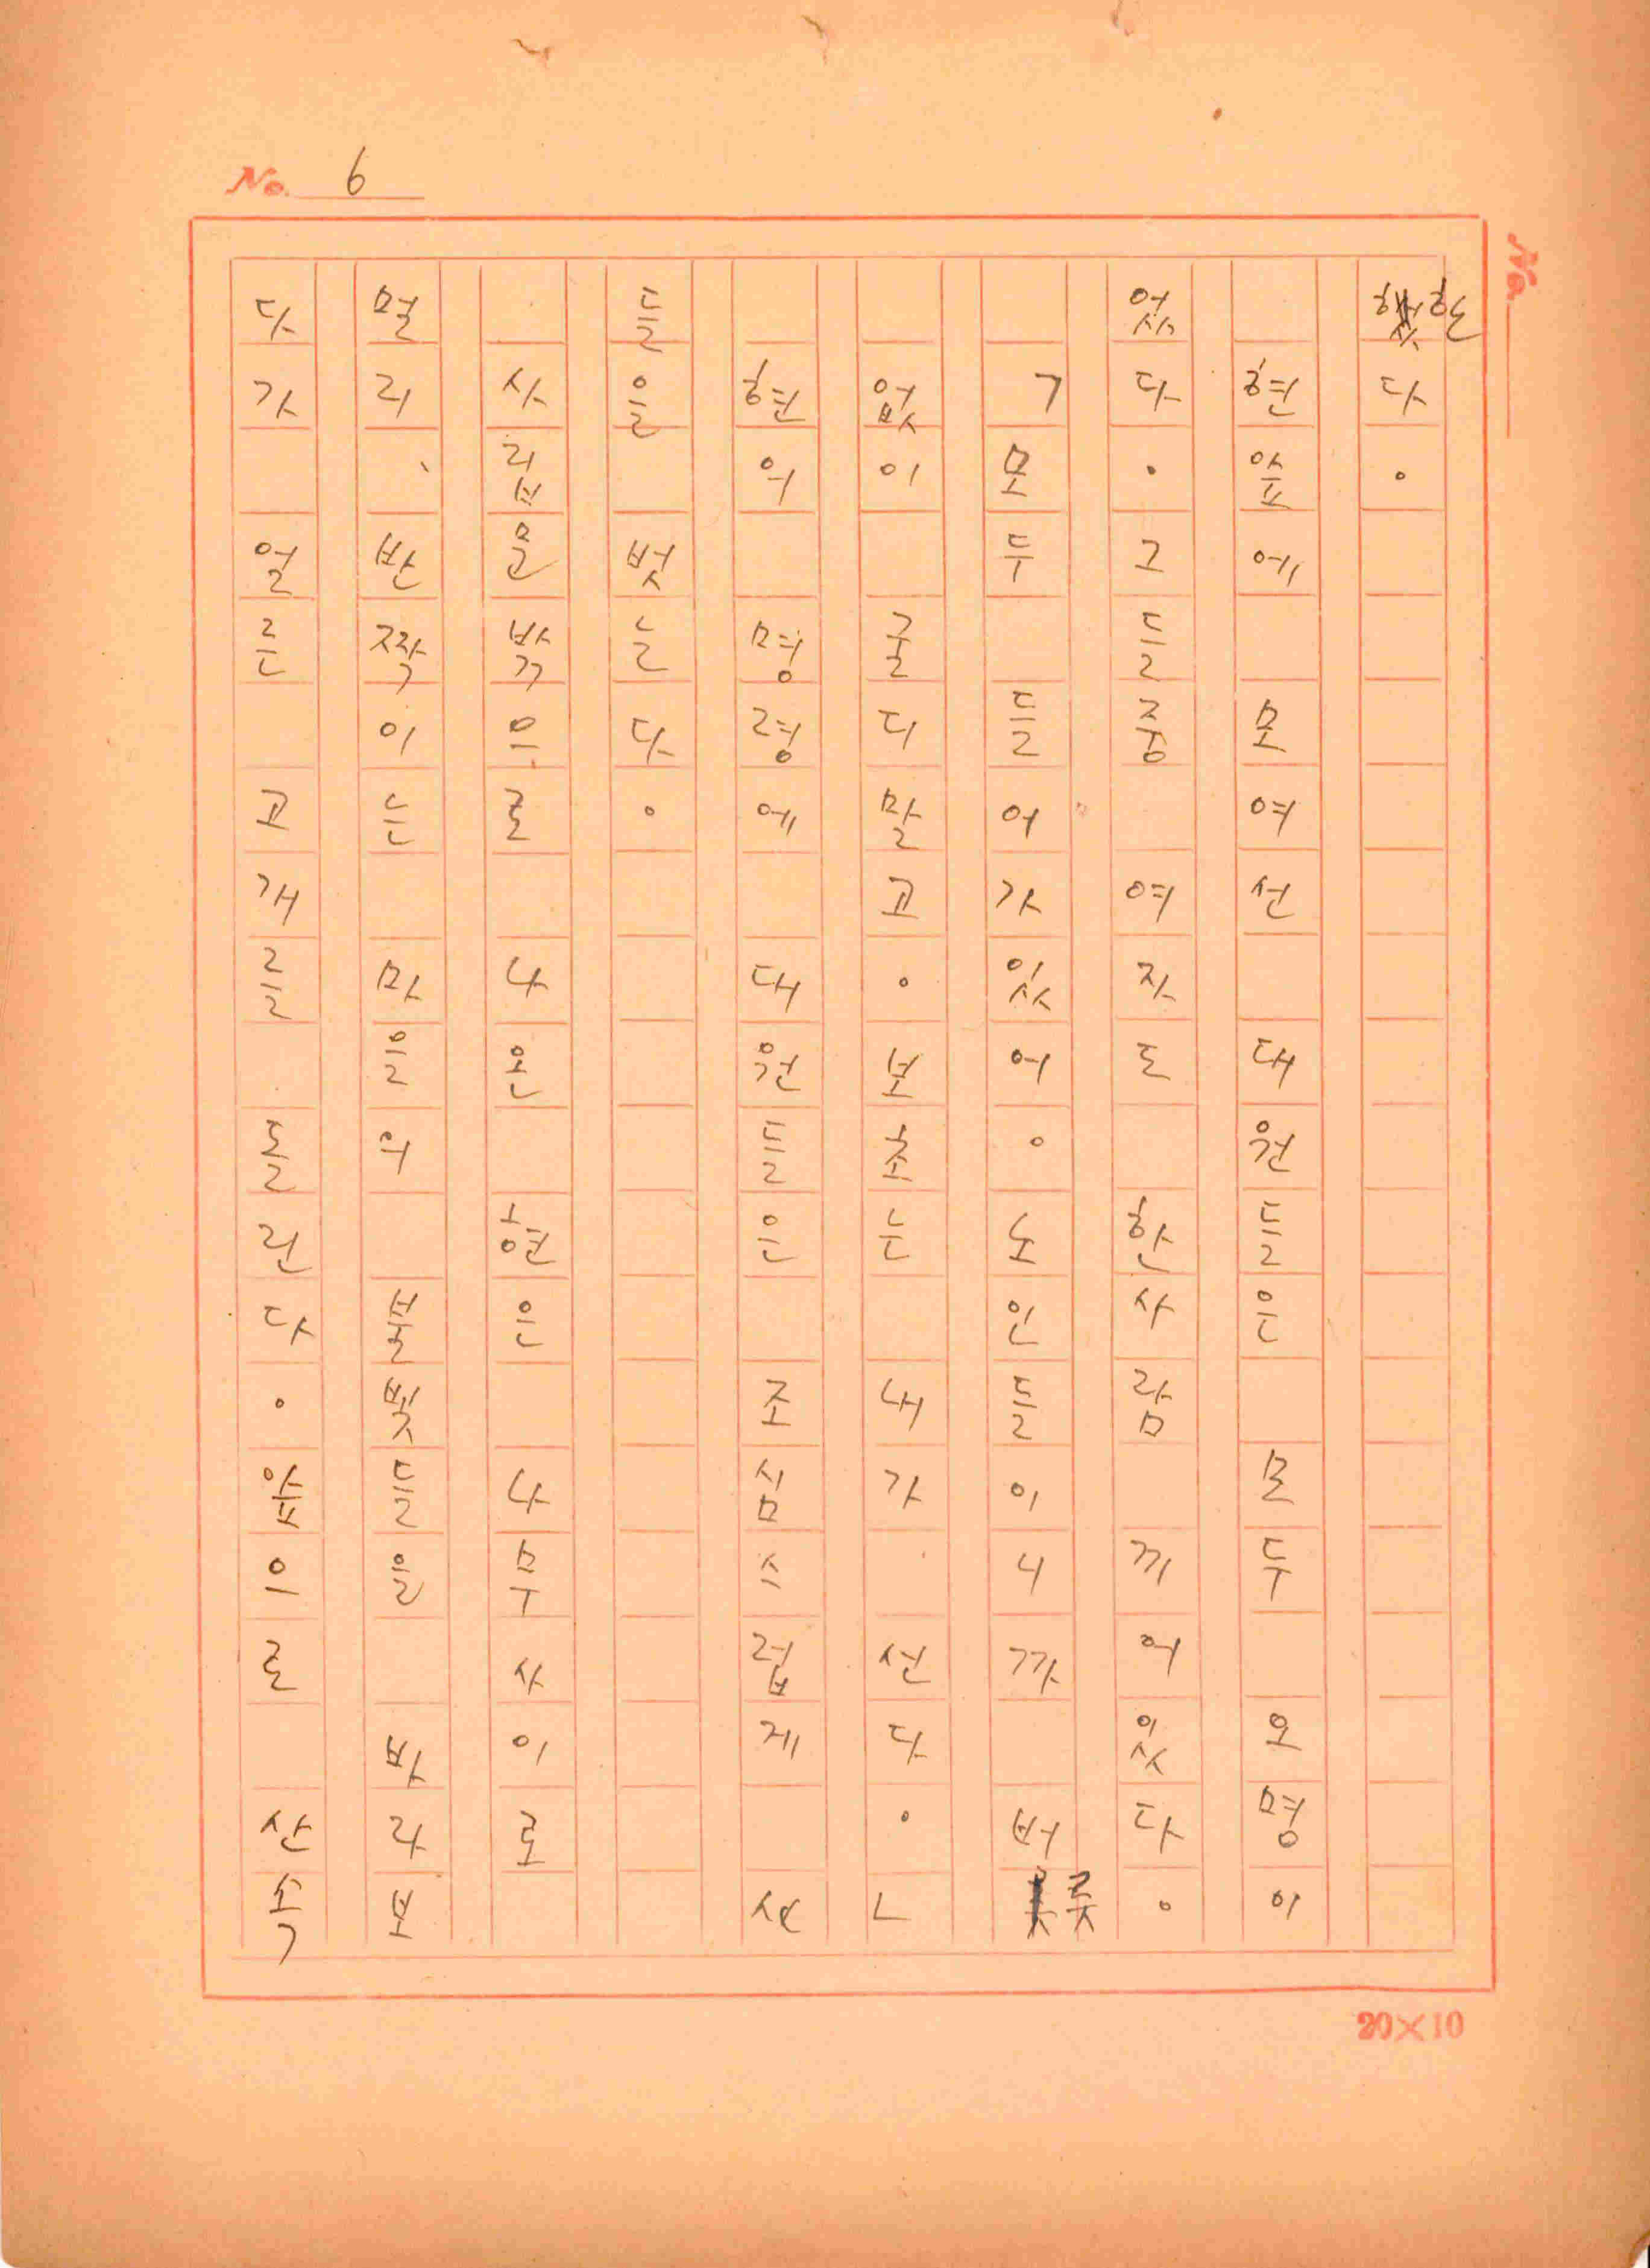 No. 6
한다.
현앞에 모여선 대원들은 모두 오명이
었다.그들중 여자도 한사람 끼어있다.
「모두 들어가있어.노인들이니까 버릇
없이 굴디말고.보초는 내가 선다.」
현의 명령에 대원들은 조심스럽게 신
들을 벗는다.
사립문밖으로 나온 현은 나무사이로
멀리、반짝이는 마을의 불빛들을 바라보
다가 얼른 고개를 돌린다.앞으로 산속
No.
20×10